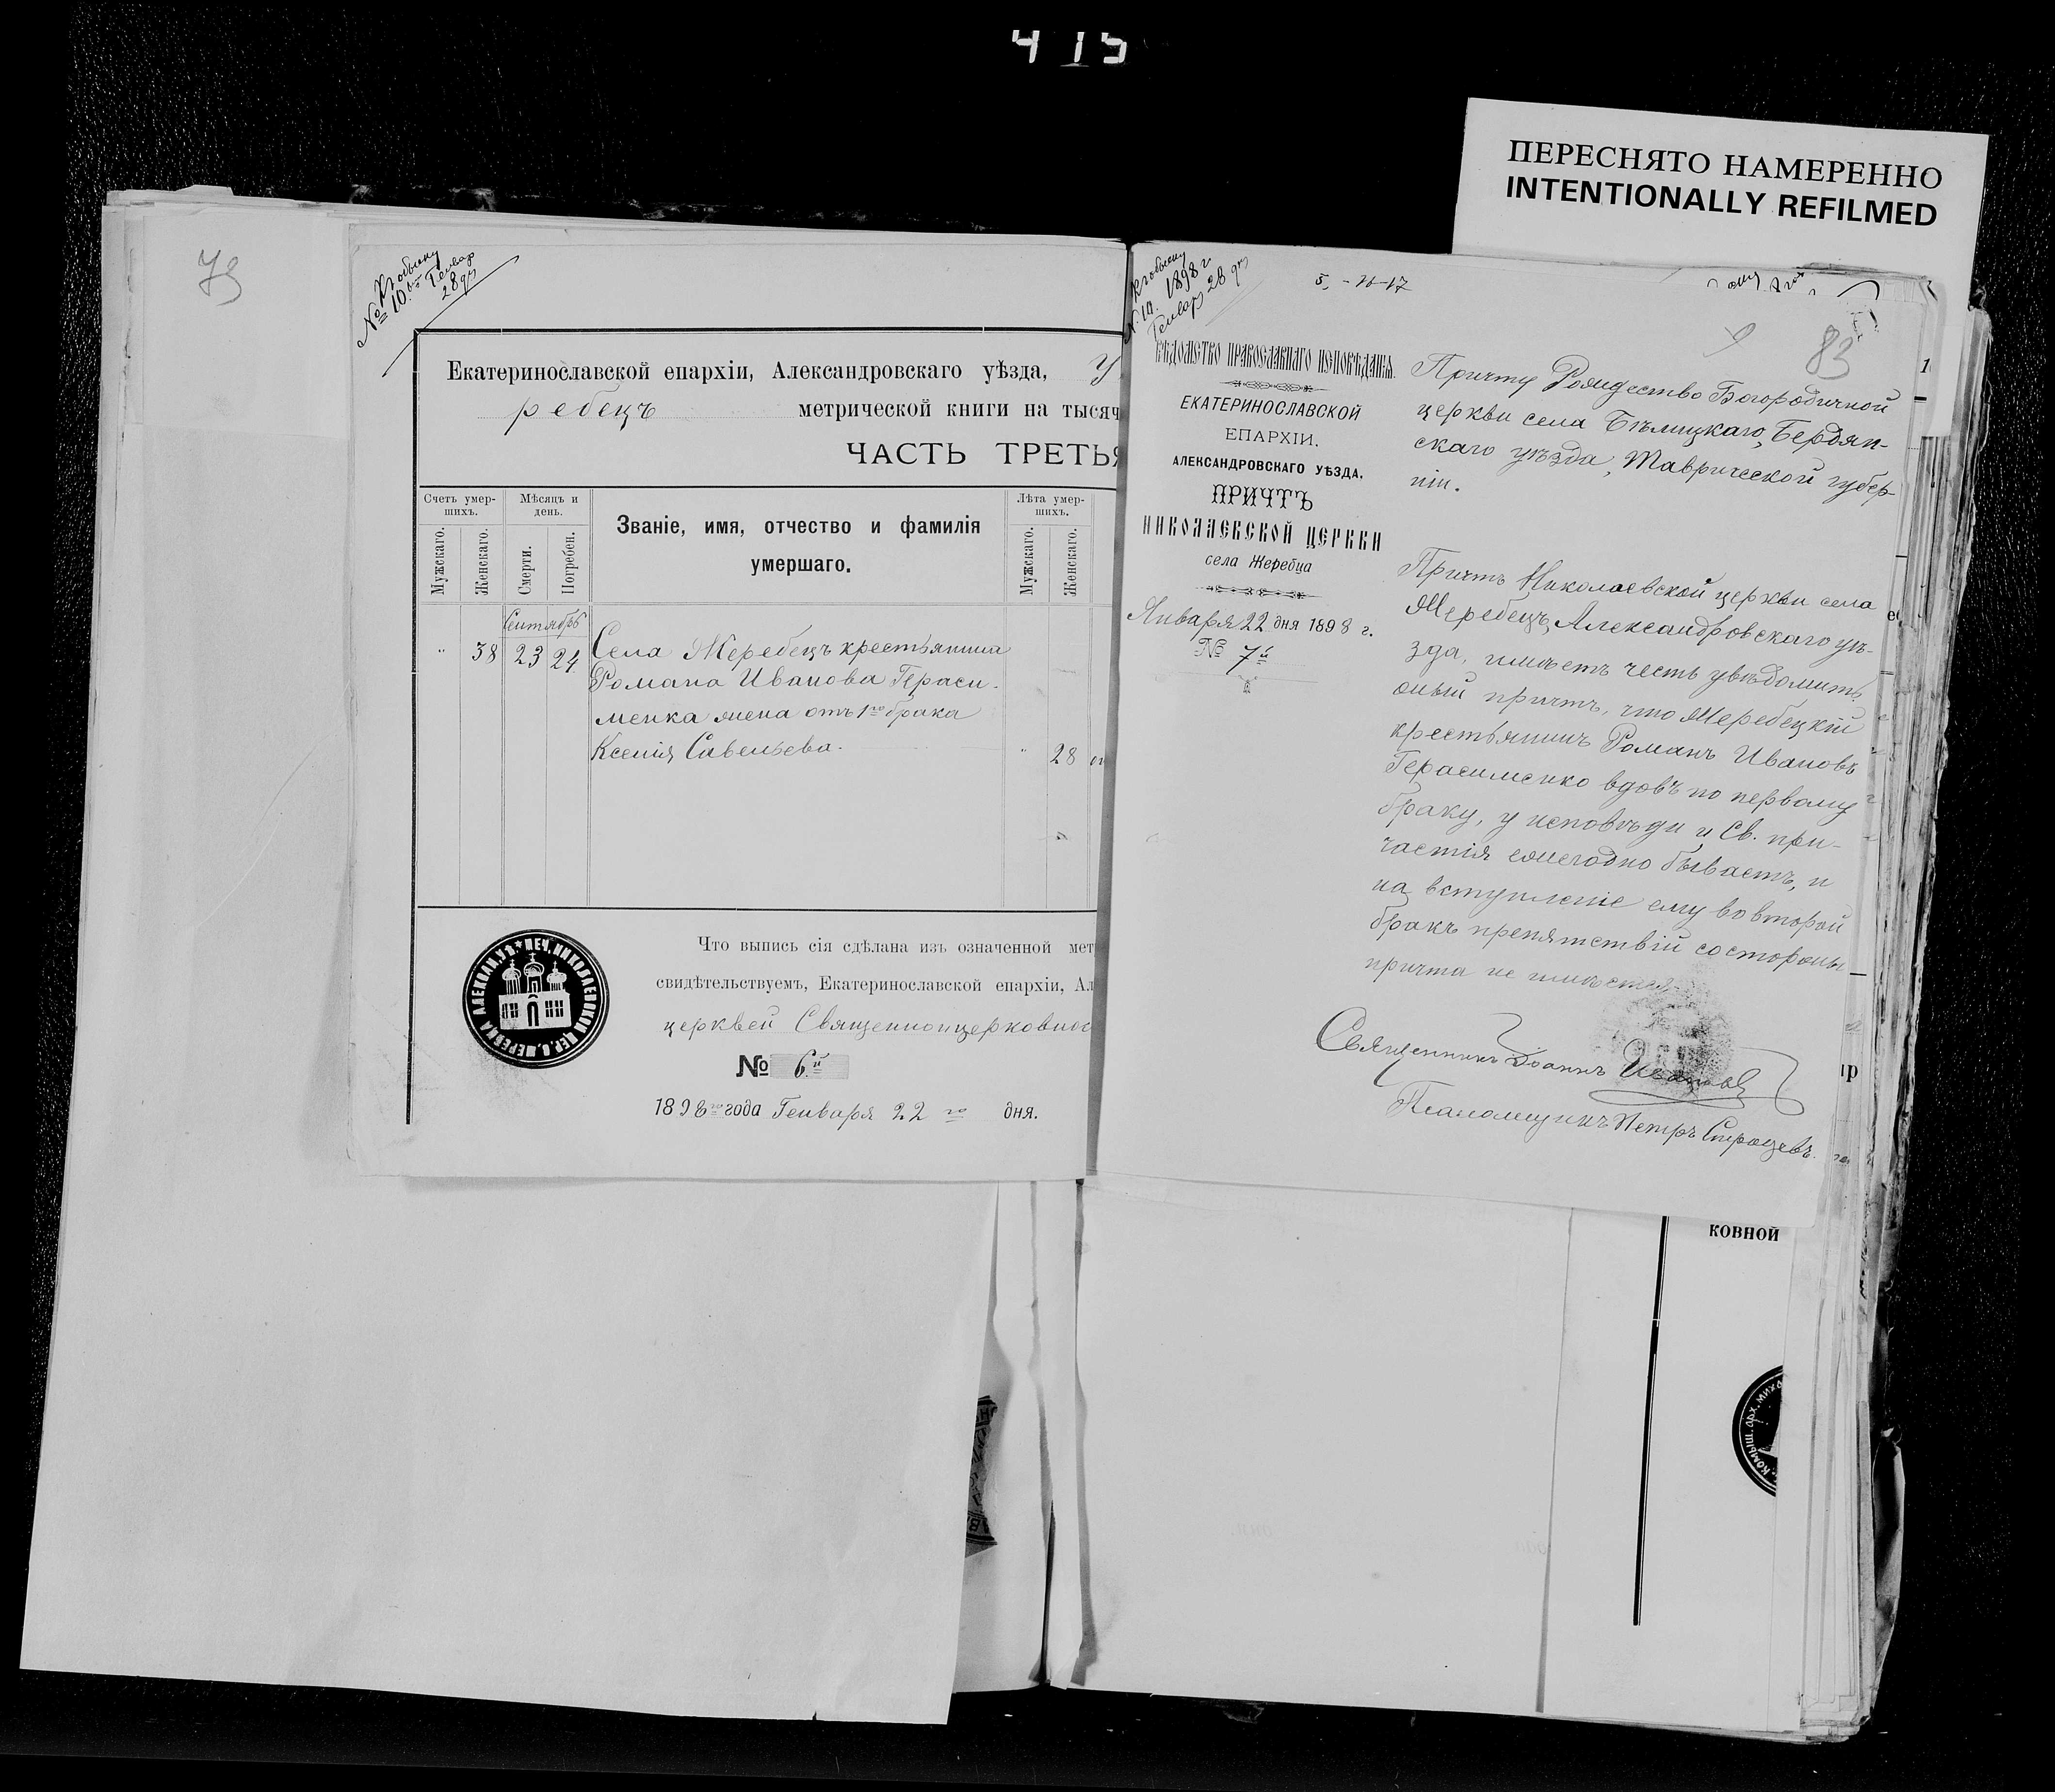 415
ПЕРЕСНЯТО НАМЕРЕННО
INTENTIONALLY REFILMED
73
Къ обыску
№ 10. Генвар
28 дн
Екатеринославской епархіи, Александровскаго уѣзда, У
ребецъ метрической книги на тысяч
ЧАСТЬ ТРЕТЬЯ
Счетъ умер-
шихъ.
Мужскаго.
Женскаго.
Мѣсяцъ и
день.
Смерти.
Погребен.
Званіе, имя, отчество и фамилія
умершаго.
Лѣта умер-
шихъ.
Мужскаго.
Женскаго.
Сентябрь
" 38 23 24 Села Жеребецъ крестьянина
Романа Иванова Гераси-
менка жена отъ 1го брака
Ксенія Савельева. " 28
Что выпись сія сдѣлана изъ означенной мет
свидѣтельствуемъ, Екатеринославской епархіи, Ал
церквей Священноцерковнос
№ 6й
1898го года Генваря 22го дня.
ПЕЧ. НИКОЛАЕВСКОЙ ЦЕР. С. ЖЕРЕБЦА АЛЕКСАН. У.
Къ обыску
N. 10. 1898 г
Генвар 28 дн
83
ВѢДОМСТВО ПРАВОСЛАВНАГО ИСПОВѢДАНІЯ.
ЕКАТЕРИНОСЛАВСКОЙ
ЕПАРХІИ.
АЛЕКСАНДРОВСКАГО УѢЗДА,
ПРИЧТЪ
НИКОЛАЕВСКОЙ ЦЕРКВИ
села Жеребца
Января 22 дня 1898 г.
№ 7й
Причту Рождество Богородичной
церкви села Бѣлицкаго, Бердян-
скаго уѣзда, Таврической губер-
ніи.
Причтъ Николаевской церкви села
Жеребецъ, Александровскаго уѣ-
зда, имѣетъ честь увѣдомить
оный причтъ, что Жеребецкій
крестьянинъ Романъ Ивановъ
Герасименко вдовъ по первому
браку, у исповѣди и Св. при-
частія ежегодно бываетъ, и
на вступленіе ему во второй
бракъ препятствій со стороны
причта не имѣется.
Священникъ Іоаннъ Ивановъ
Псаломщикъ Петръ
ковной